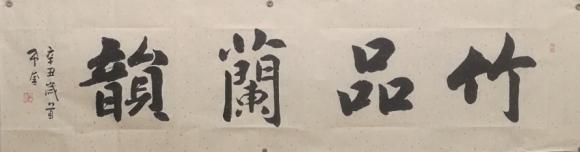 竹品蘭韻
辛丑歲首